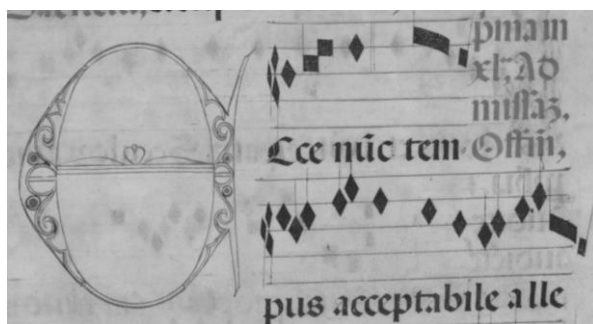 p̄ma in
xl; Ad
missaz.
Ecce nūc tem Offm̄,
pus acceptabile alle